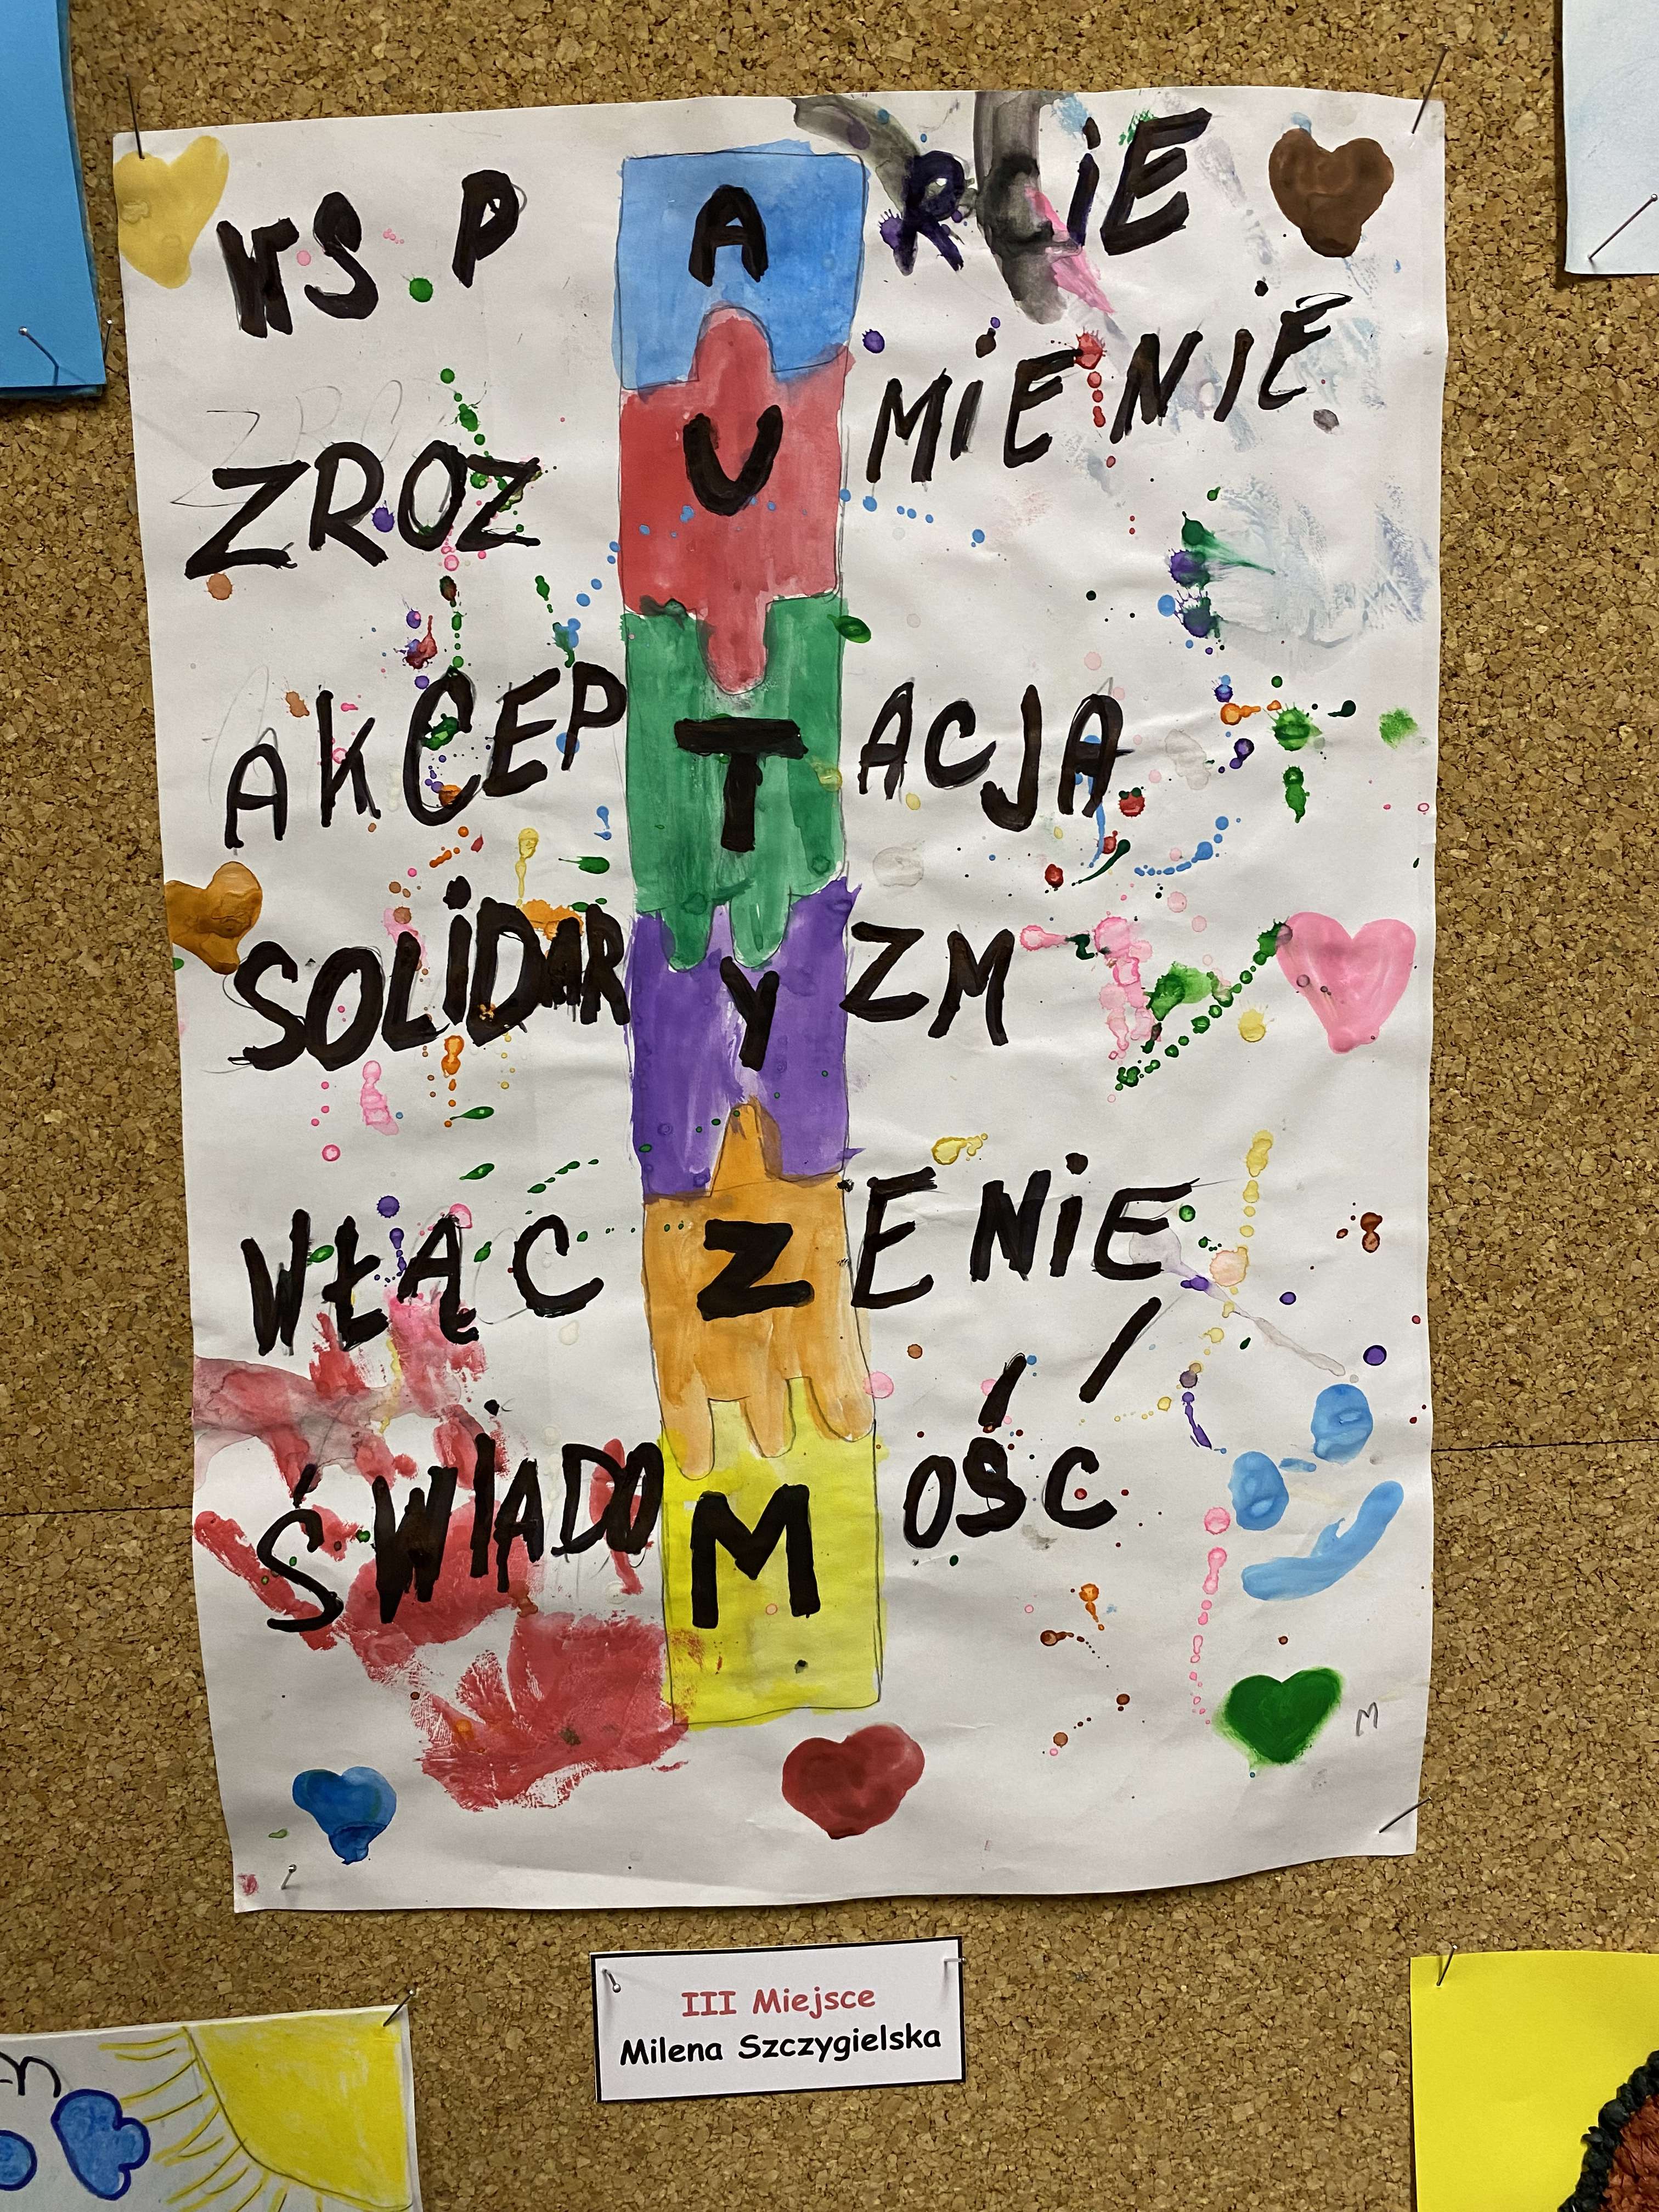 WSPARCIE
ZROZUMIENIE
AKCEPTACJA
SOLIDARYZM
WŁĄCZENIE
ŚWIADOMOŚĆ
M
III Miejsce
Milena Szczygielska